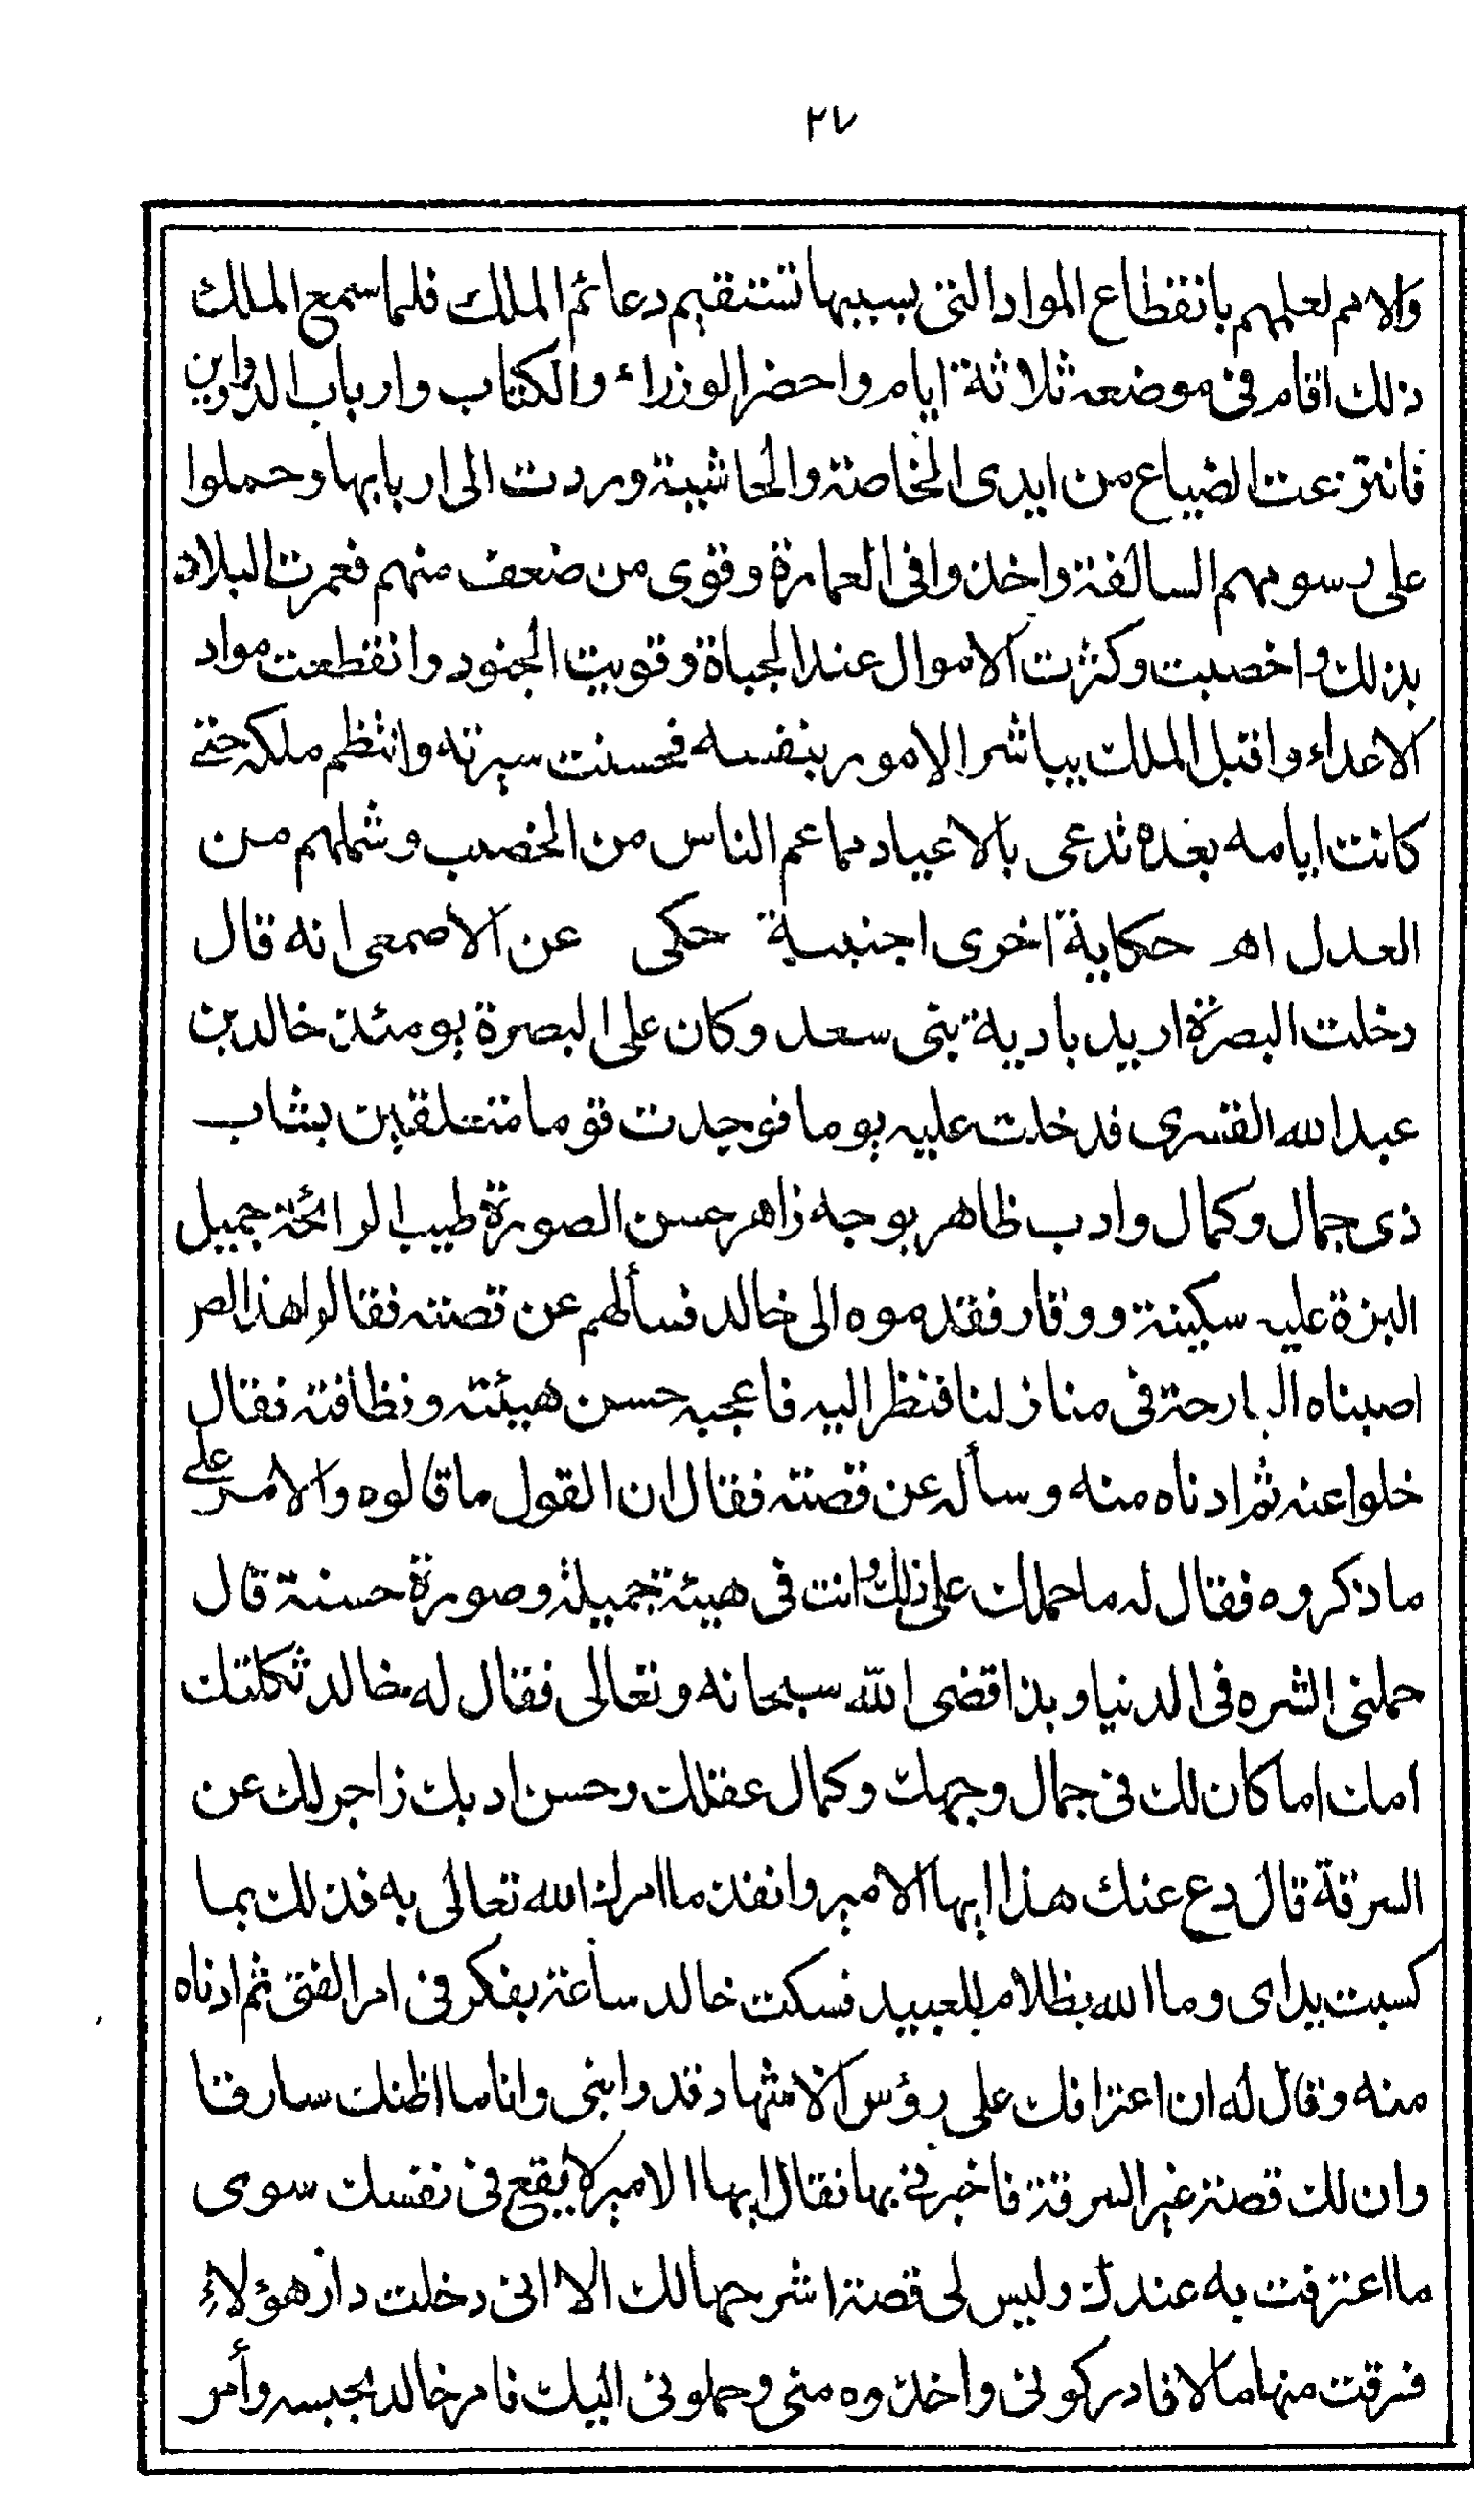 ٢٧
والامم لعلمهم بانقطاع المواد التى بسببها تستقيم دعائم الملك فلما سمع الملك
ذلك اقام فى موضعه ثلاثة ايام واحضر الوزراء والكتاب وارباب الدواوين
فانتزعت الضياع من ايدى الخاصة والحاشية وردت الى اربابها وحملوا
على رسومهم السالفة واخذوا فى العمارة وقوى من ضعف منهم فعمرت البلاد
بذلك واخصبت وكثرت الاموال عند الجباة وقويت الجنود وانقطعت مواد
الاعداء واقبل الملك يباشر الامور بنفسه فحسنت سيرته وانتظم ملكه حتى
كانت ايامه بعده تدعى بالاعياد مما عم الناس من الخصب وشملهم من
العدل اهـ حكاية اخرى اجنبية حكى عن الاصمعى انه قال
دخلت البصرة اريد بادية بنى سعد وكان على البصرة يومئذ خالد بن
عبد الله القسرى فدخلت عليه يوما فوجدت قوما متعلقين بشاب
ذى جمال وكمال وادب ظاهر بوجه زاهر حسن الصورة طيب الرائحة جميل
البزة عليه سكينة ووقار فقدموه الى خالد فسألهم عن قصته فقالوا هذا لص
اصبناه البارحة فى منازلنا فنظر اليه فاعجبه حسن هيئته ونظافته فقال
خلوا عنه ثم ادناه منه وسأله عن قصته فقال ان القول ما قالوه والامر على
ما ذكروه فقال له ما حملك على ذلك وانت فى هيئة جميلة وصورة حسنة قال
حملنى الشره فى الدنيا وبذا قضى الله سبحانه وتعالى فقال له خالد ثكلتك
امك اما كان لك فى جمال وجهك وكمال عقلك وحسن ادبك زاجر لك عن
السرقة قال دع عنك هذا ايها الامير وانفذ ما امرك الله تعالى به فذلك بما
كسبت يداى وما الله بظلام للعبيد فسكت خالد ساعة يفكر فى امر الفتى ثم ادناه
منه وقال له ان اعترافك على رؤس الاشهاد قد رابنى وانا ما اظنك سارقا
وان لك قصة غير السرقة فاخبرنى بها فقال ايها الامير لا يقع فى نفسك سوى
ما اعترفت به عندك وليس لى قصة اشرحها لك الا انى دخلت دار هؤلاءِ
فسرقت منها مالا فادركونى واخذوه منى وحملونى اليك فامر خالد بحبسه وأمر